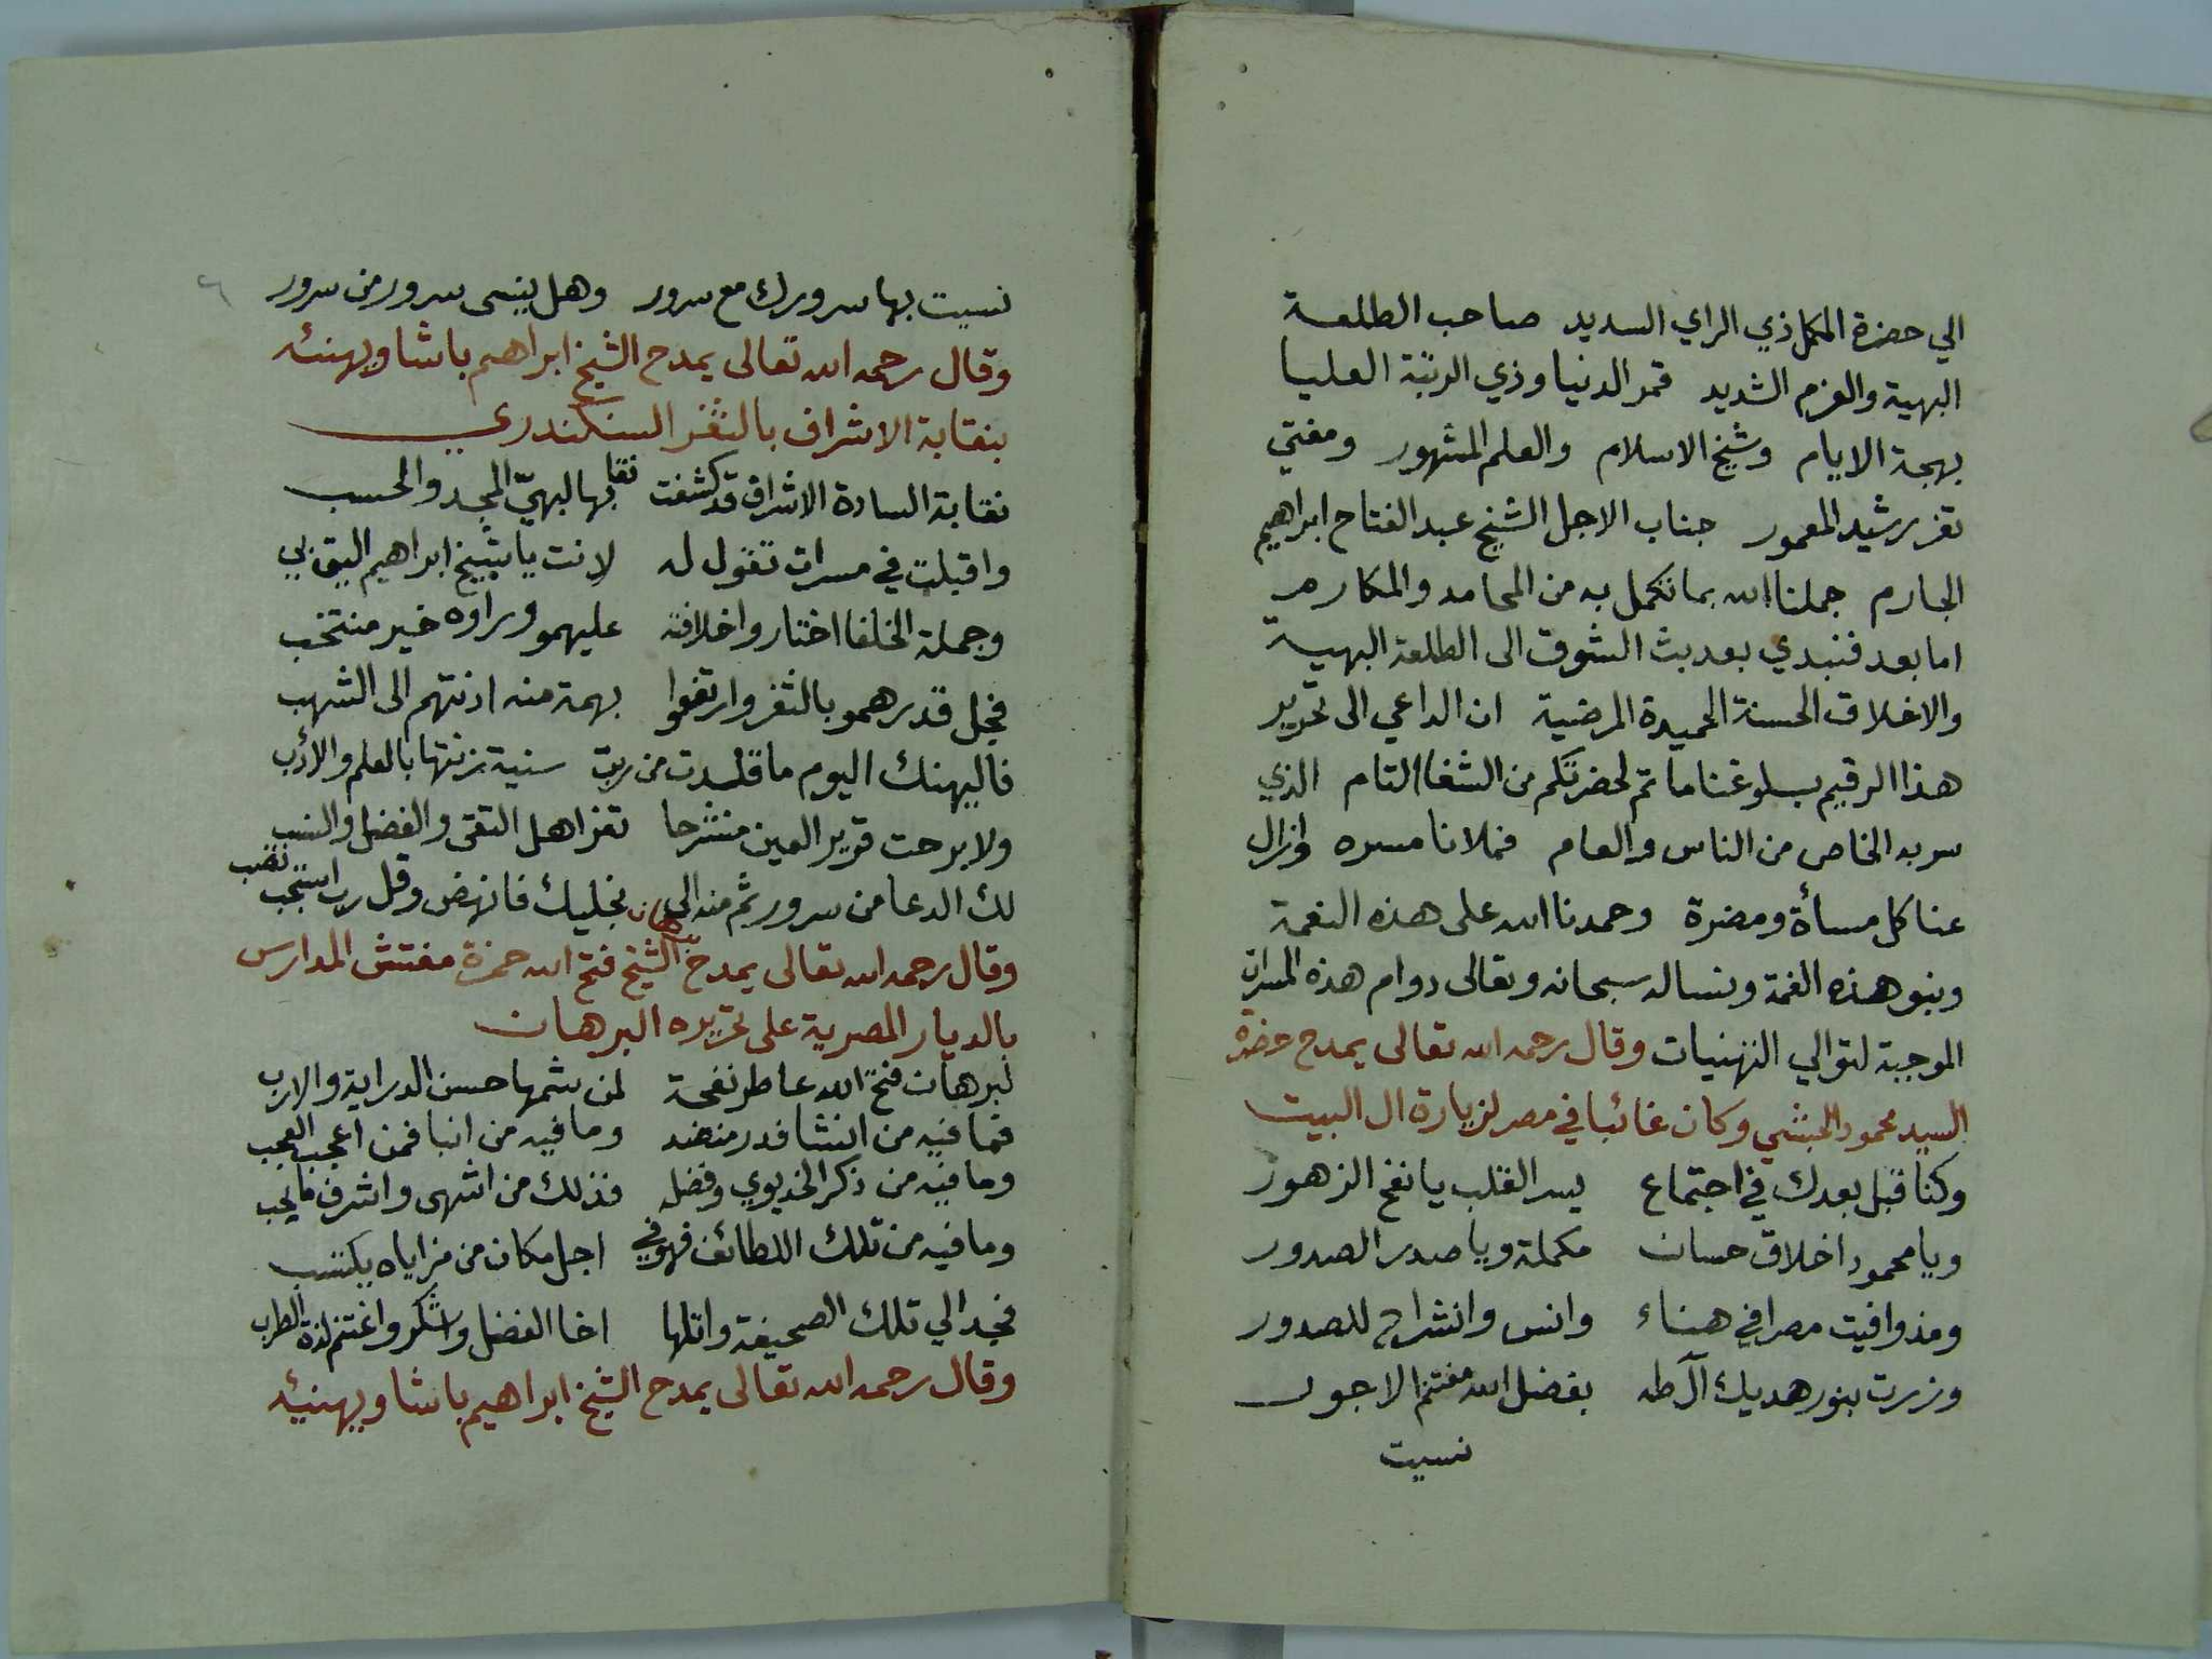 الي حضرة المكمل ذي الراي السديد صاحب الطلعة
البهية والعزم الشديد قمر الدنيا وذي الرتبة العليا
بهجة الايام وشيخ الاسلام والعلم المشهور ومفتي
ثغر رشيد المعمور جناب الاجل الشيخ عبد الفتاح ابراهيم
الجارم جملنا الله بما تكمل به من المحامد والمكارم
اما بعد فنبدي بعد بث الشوق الى الطلعة البهية
والاخلاق الحسنة الحميدة المرضية ان الداعي الى تحرير
هذا الرقيم بلوغنا ما تم لحضرتكم من الشفا التام الذي
سر به الخاص من الناس والعام فملانا مسره وازال
عنا كل مسأة ومضرة وحمدنا الله على هذه النعمة
وبنو هذه الغمة ونساله سبحانه وتعالى دوام هذه المسرات
الموجبة لتوالي التهنيات وقال رحمه الله تعالى يمدح حضرة
السيد محمود الحبشي وكان غائبا في مصر لزيارة ال البيت
وكنا قبل بعدك في اجتماع يسر القلب يا نفح الزهور
ويا محمود اخلاق حسان مكملة ويا صدر الصدور
ومذ وافيت مصرا في هناء وانس وانشراح للصدور
وزرت بنور هديك آل طه بفضل الله مغتنم الاجور
نسيت
نسيت بها سرورك مع سرور وهل ينسى سرور من سرور
وقال رحمه الله تعالى يمدح الشيخ ابراهيم باشا ويهنئه
بنقابة الاشراف بالثغر السنكندري
نقابة السادة الاشراف قد كشفت نقابها لبهيّ المجد والحسب
واقبلت في مسرات تقول له لانت يا شيخ ابراهيم اليق بي
وجملة الخلفا اختاروا خلافته عليهمو وراوه خير منتخب
فجل قدرهمو بالثغر وارتفعوا بهمة منه ادنتهم الى الشهب
فاليهنك اليوم ما قلدت من رتب سنية زنتها بالعلم والأدب
ولا برحت قرير العين منشرحا تغز اهل التقى والفضل والنسب
لك الدعا من سرور ثم منه الى نجليك فانهض وقل رب استجب تصب
وقال رحمه الله تعالى يمدح الشيخ فتح الله حمزة مفتش المدارس
بالديار المصرية على تحريره البرهان
لبرهان فتح الله عاطر نفحة لمن شمها حسن الدراية والارب
فما فيه من انشا فدر منضد وما فيه من انبا فمن اعجب العجب
وما فيه من ذكر الخديوي وفضله فذلك من اشهى واشرف ما يجب
وما فيه من تلك اللطائف فهو في اجل مكان من مزاياه يكتسب
فجد الي تلك الصحيفة واتلها اخا الفضل واشكر واغتنم لذة الطرب
وقال رحمه الله تعالى يمدح الشيخ ابراهيم باشا ويهنيه